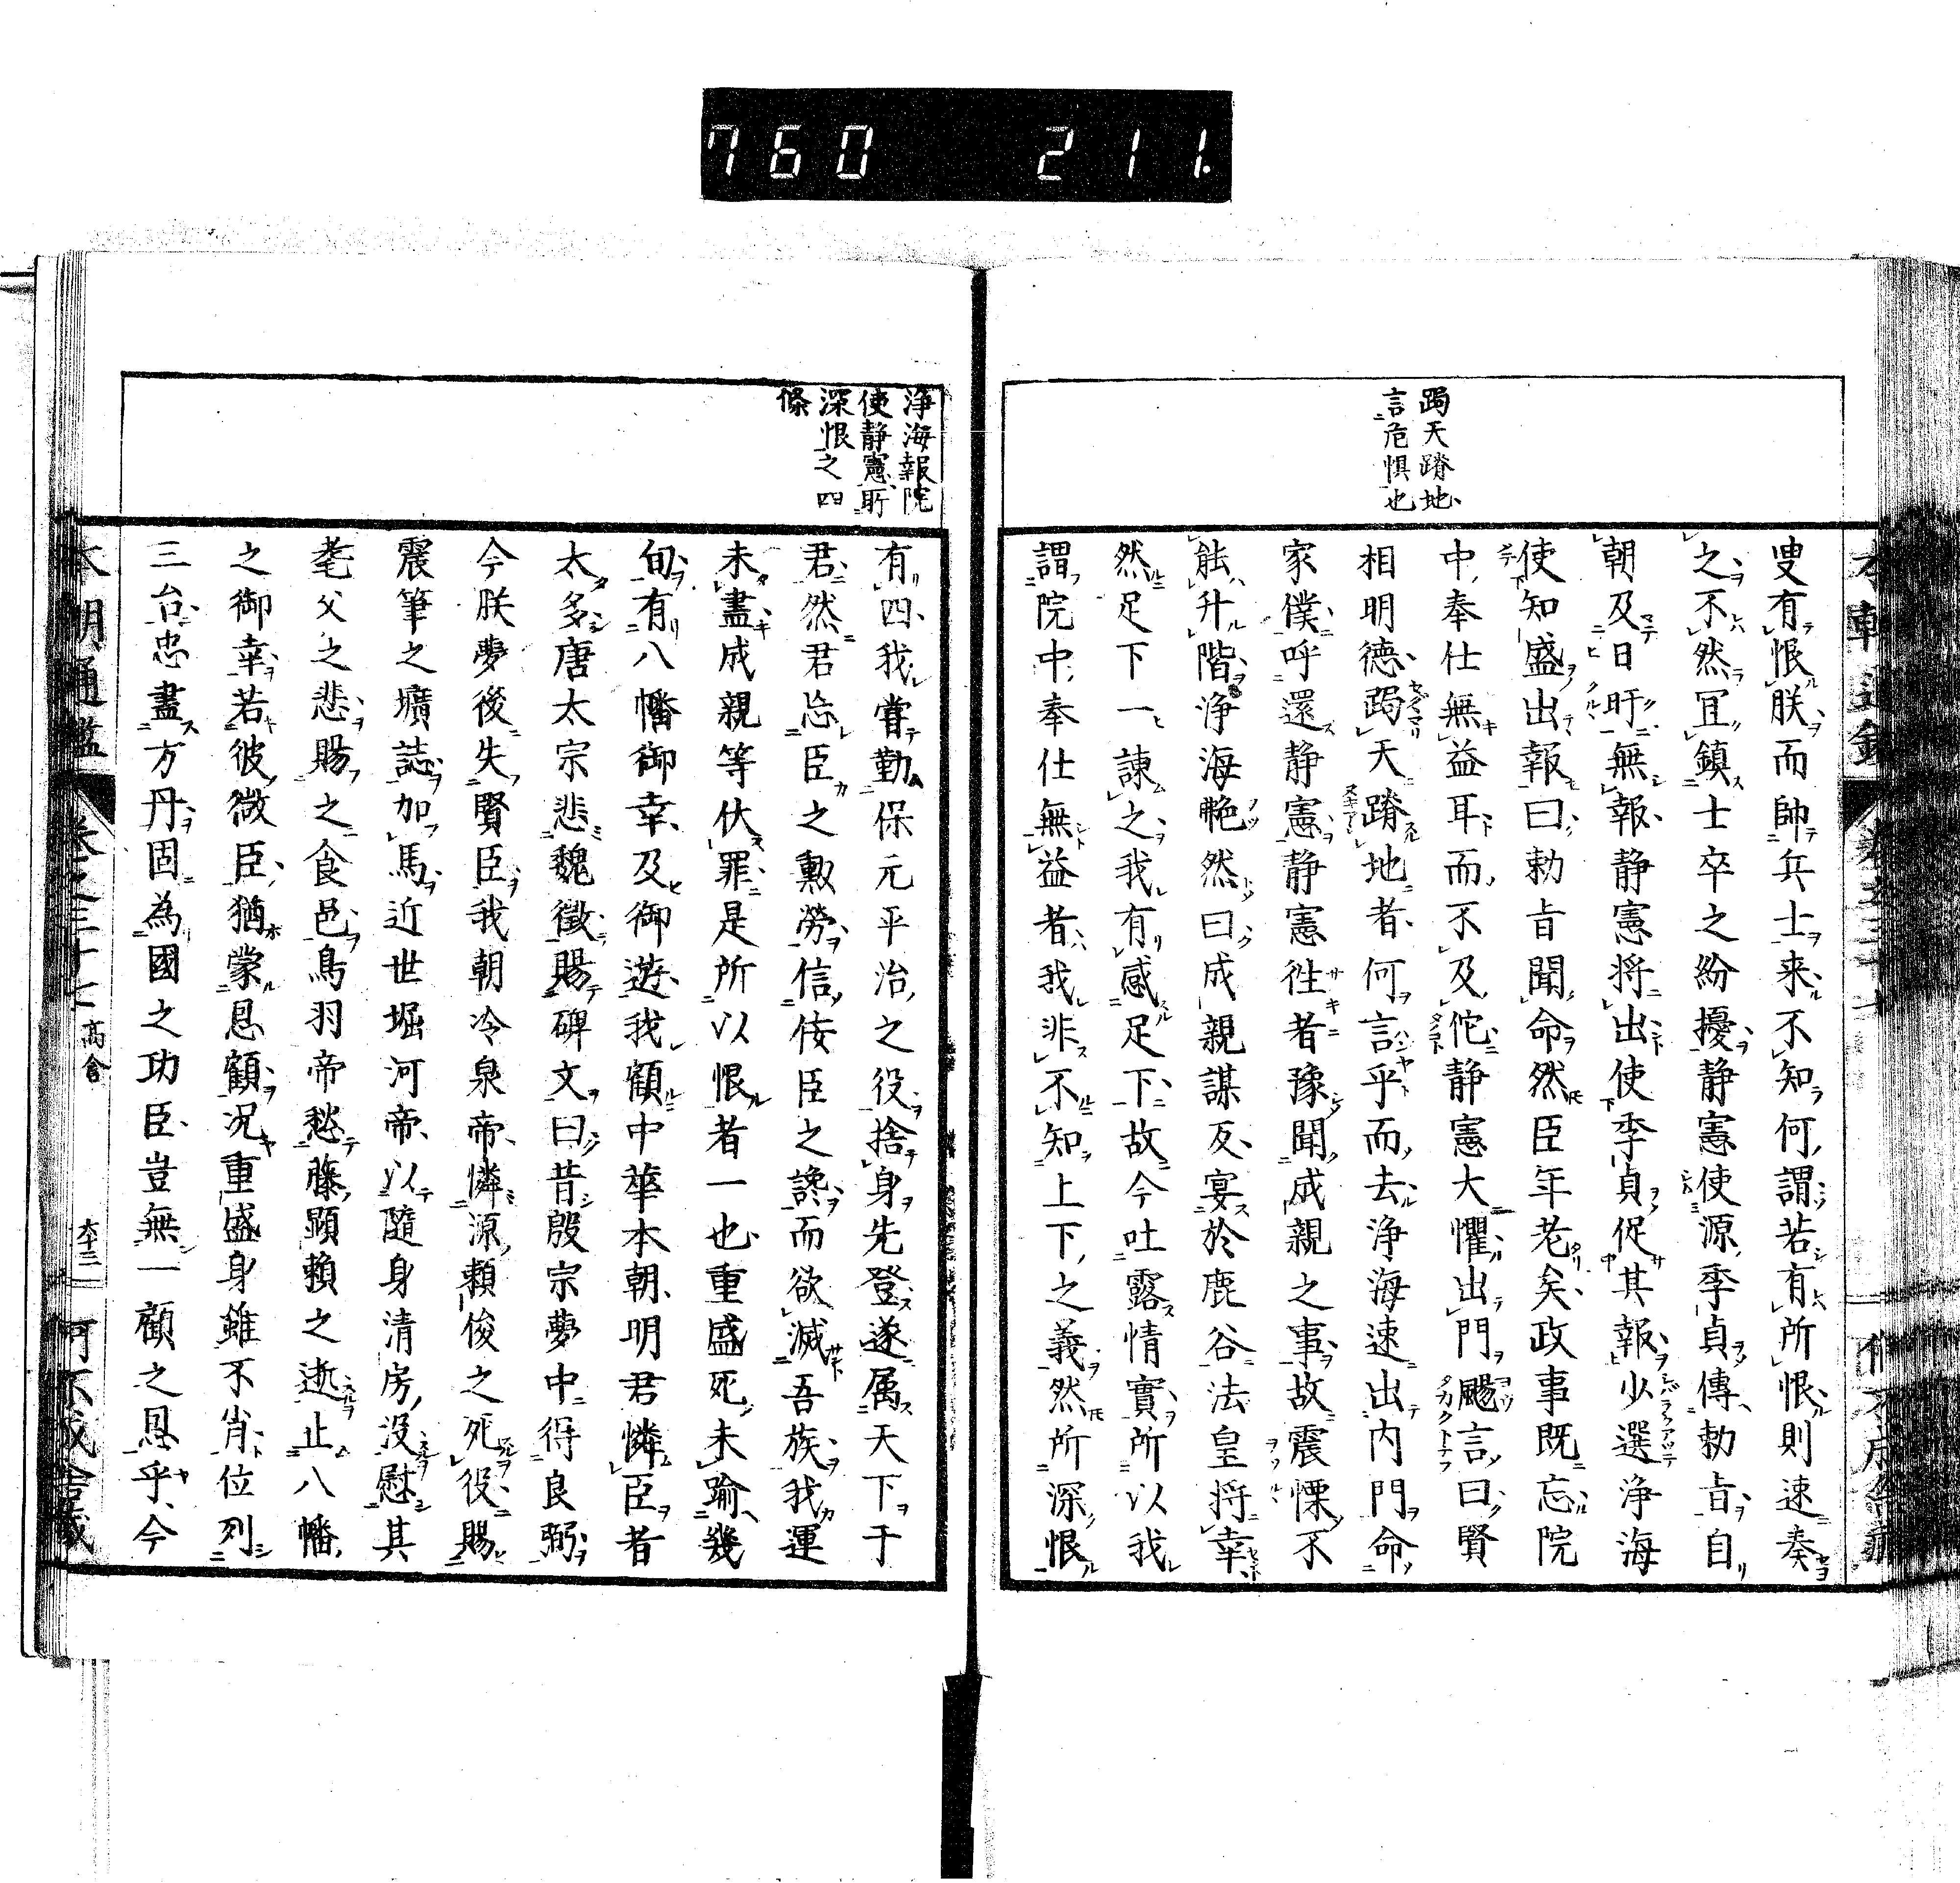 760 211.
跼天蹐地
言危惧也
叟有恨朕而帥兵士来不知何謂若有所恨則速奏
之不然冝鎮士卒之紛擾静憲使源季貞傳勅㫖自
朝及日旰無報静憲将出使季貞促其報少選浄海
使知盛出報曰勅㫖聞命然臣年老矣政事既忘院
中奉仕無益耳而不及佗静憲大懼出門颺言曰賢
相明德跼天蹐地者何言乎而去浄海速出内門命
家僕呼還静憲静憲徃者豫聞成親之事故震慄不
能升階浄海艴然曰成親謀反宴於鹿谷法皇将幸
然足下一諌之我有感足下故今吐露情實所以我
謂院中奉仕無益者我非不知上下之義然所深恨
浄海報院
使静憲所
深恨之四
條
有四我甞勤保元平治之役捨身先登遂属天下于
君然君忘臣之勲勞信佞臣之讒而欲滅吾族我運
未盡成親等伏罪是所以恨者一也重盛死未踰幾
旬有八幡御幸及御遊我顧中華本朝明君憐臣者
太多唐太宗悲魏徵賜碑文曰昔殷宗夢中得良弼
今朕夢後失賢臣我朝冷泉帝憐源頼俊之死役賜
震筆之壙誌加馬近世堀河帝以隨身清房没慰其
耄父之悲賜之食邑鳥羽帝愁藤顕頼之逝止八幡
之御幸若彼微臣猶蒙恩顧况重盛身雖不肖位列
三台忠盡方丹固為國之功臣豈無一顧之恩乎今
本朝通鑑 卷之三十七 高倉 六十三 何不成舎藏